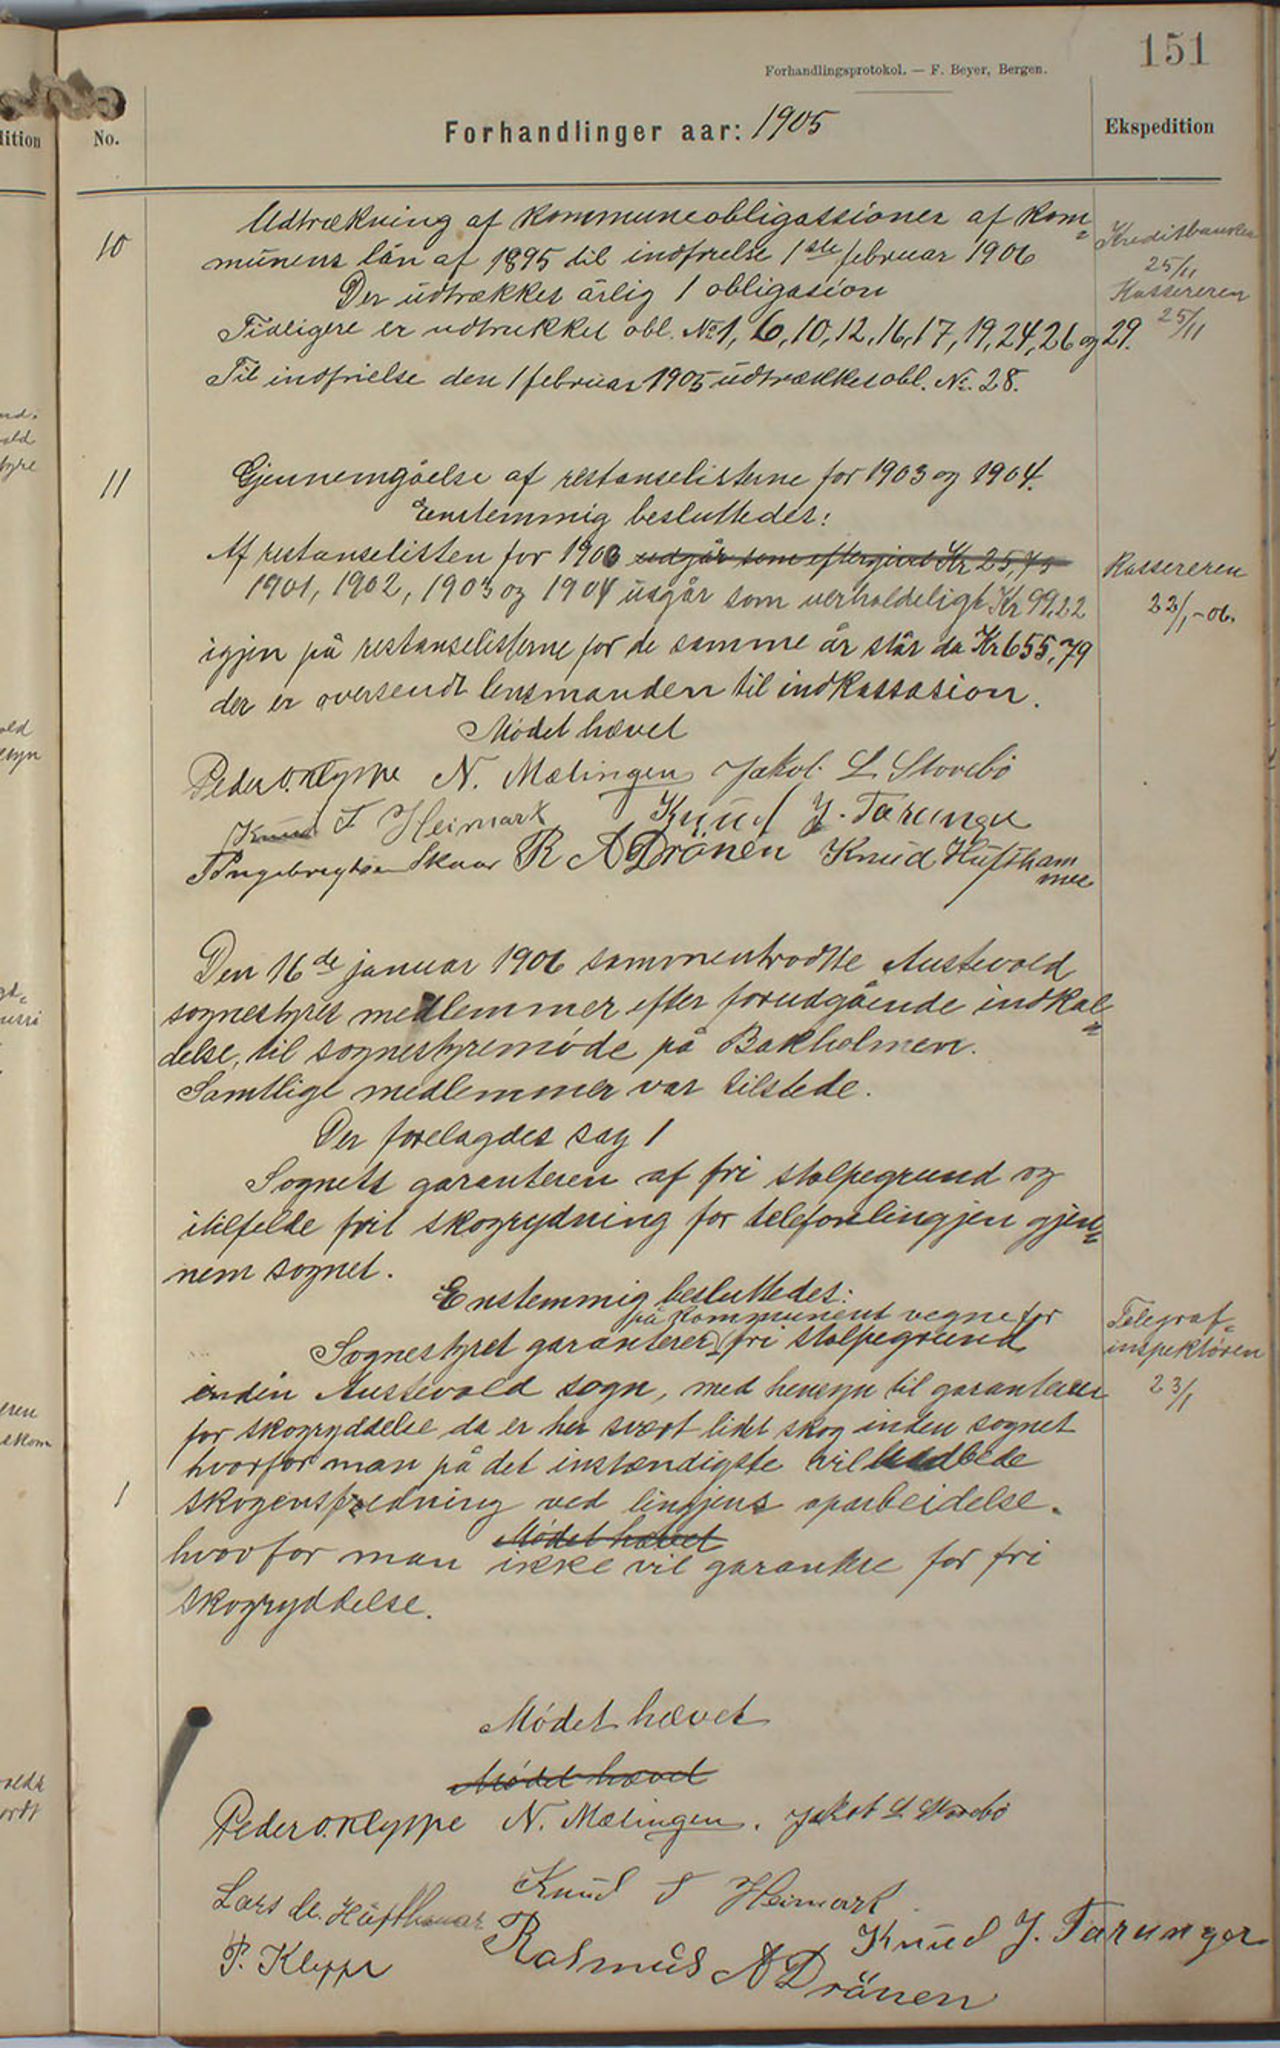 151
Forhandlingsprotokol. — F. Beyer, Bergen.
No.
Forhandlinger aar: 1905
Ekspedition
10
Udtrækning af kommuneobligassioner af kom=
munens lån af 1895 til indfrielse 1ste februar 1906
Der udtrækkes årlig 1 obligasion
Tidligere er udtrukket obl. No 1, 6, 10, 12, 16, 17, 19, 24, 26 og 29.
Til indfrielse den 1 februar 1905 udtrækkes obl. No. 28.
Kreditbanken
25/11
Kassereren
25/11
11
Gjennemgåelse af restanselisterne for 1903 og 1904.
Enstemmig besluttedes:
Af restanselisten for 1900 udgår som eftergivet Kr 25,75
1901, 1902, 1903 og 1904 udgår som uerholdeligt Kr 99,22
igjen på restanselisterne for de samme år står da Kr 655,79
der er oversendt lensmanden til indkassasion.
Kassereren
22/1-06.
Mødet hævet
Peder O. Kleppe N. Mælingen Jakob L Storebø
Knud T Heimark Knud J. Tarunger
P Ingebrigtsen Skaar R A Drönen Knud Huftham
mer
Den 16de januar 1906 sammentrådte Austevold
sognestyres medlemmer efter forudgående indkal=
delse, til sognestyremøde på Bakholmen.
Samtlige medlemmer var tilstede.
Der forelagdes sag 1
Sognets garanteren af fri stolpegrund og
itilfelde frit skogrydning for telefonlingjen gjen=
nem sognet.
Enstemmig besluttedes:
på kommunens vegne for
Sognestyret garanterer fri stolpegrund
inden Austevold sogn, med hensyn til garanterer
for skogryddelse da er her svært lidet skog inden sognet
hvorfor man på det instændigste vil bede
1
skogens fredning ved linjens oparbeidelse.
Mødet hævet
hvorfor man ikke vil garantere for fri
skogryddelse.
Telegraf=
inspektøren
23/1
Mødet hævet
Mødet hævet
Peder O. Kleppe N. Mælingen. Jakob L Storebø
Knud T Heimark
Lars M. Hufthamar
Knud J. Tarunger
P. Kleppe
Rasmus A Drönen